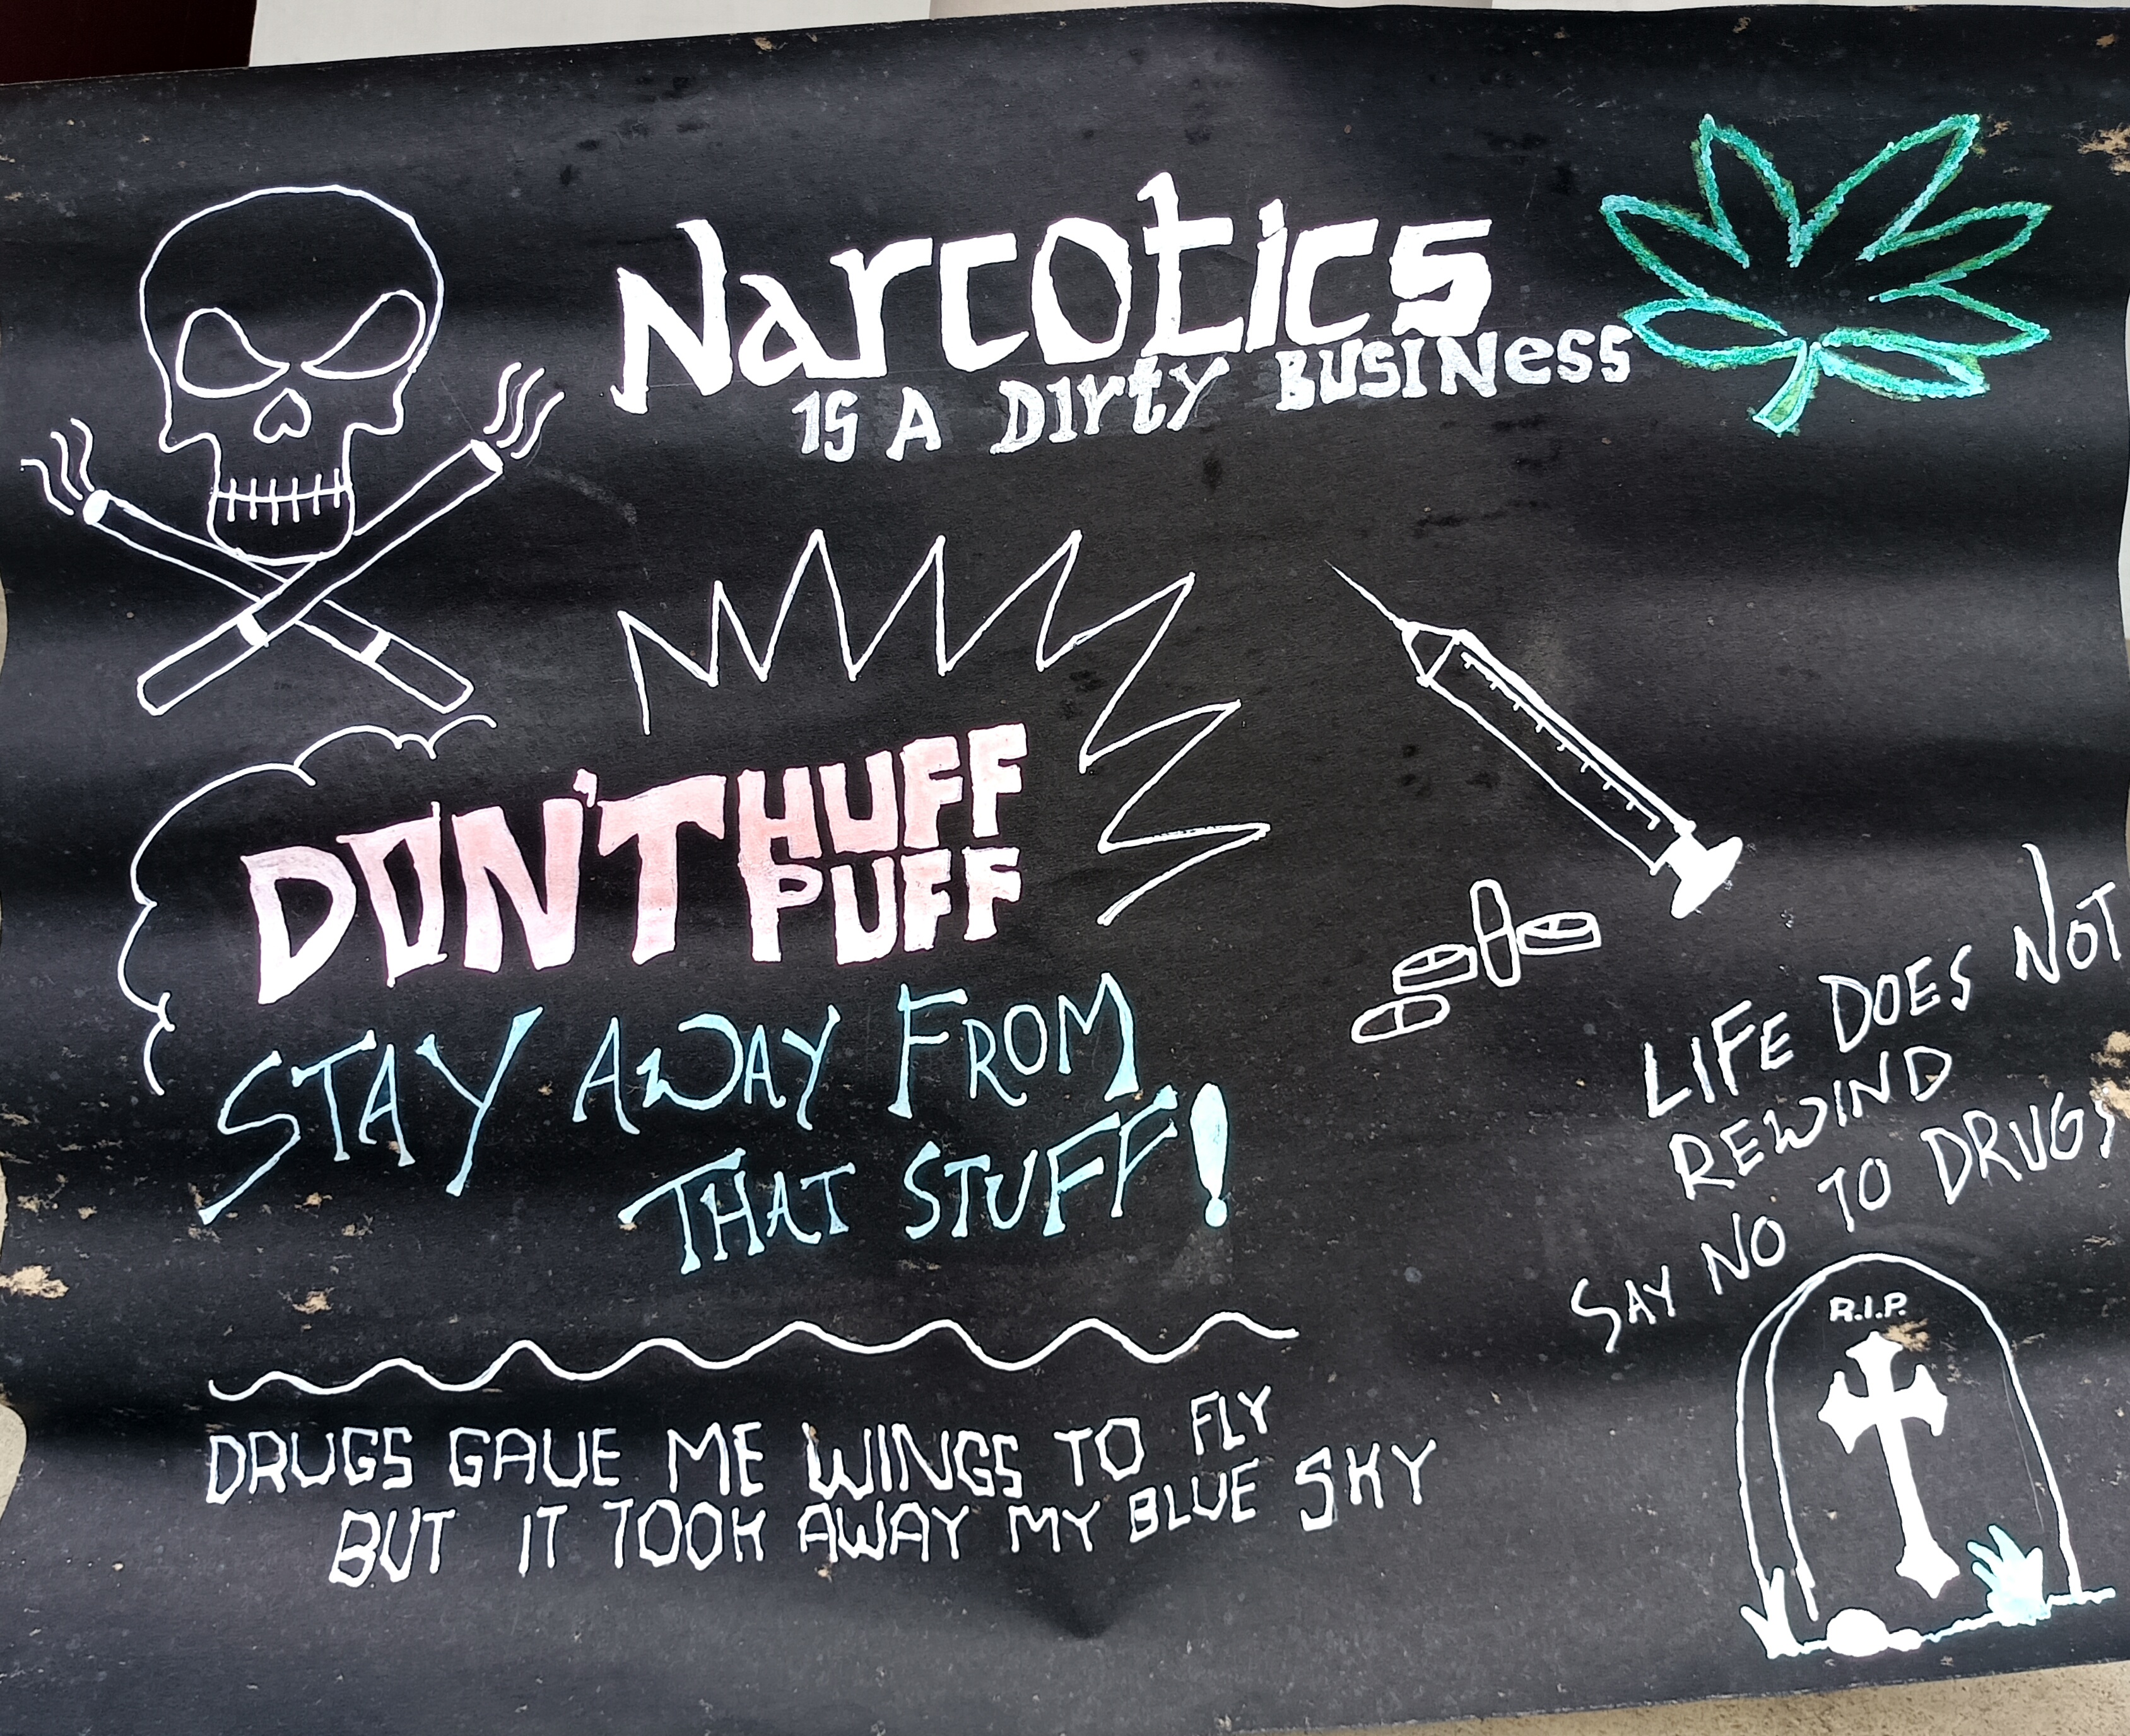 Narcotics
IS A DIrty BUSINess
DON'T HUFF
PUFF
STAY AWAY FROM
THAT STUFF!
LIFE DOES NOT
REWIND
SAY NO TO DRUGS
R.I.P.
DRUGS GAVE ME WINGS TO FLY
BUT IT TOOK AWAY MY BLUE SKY